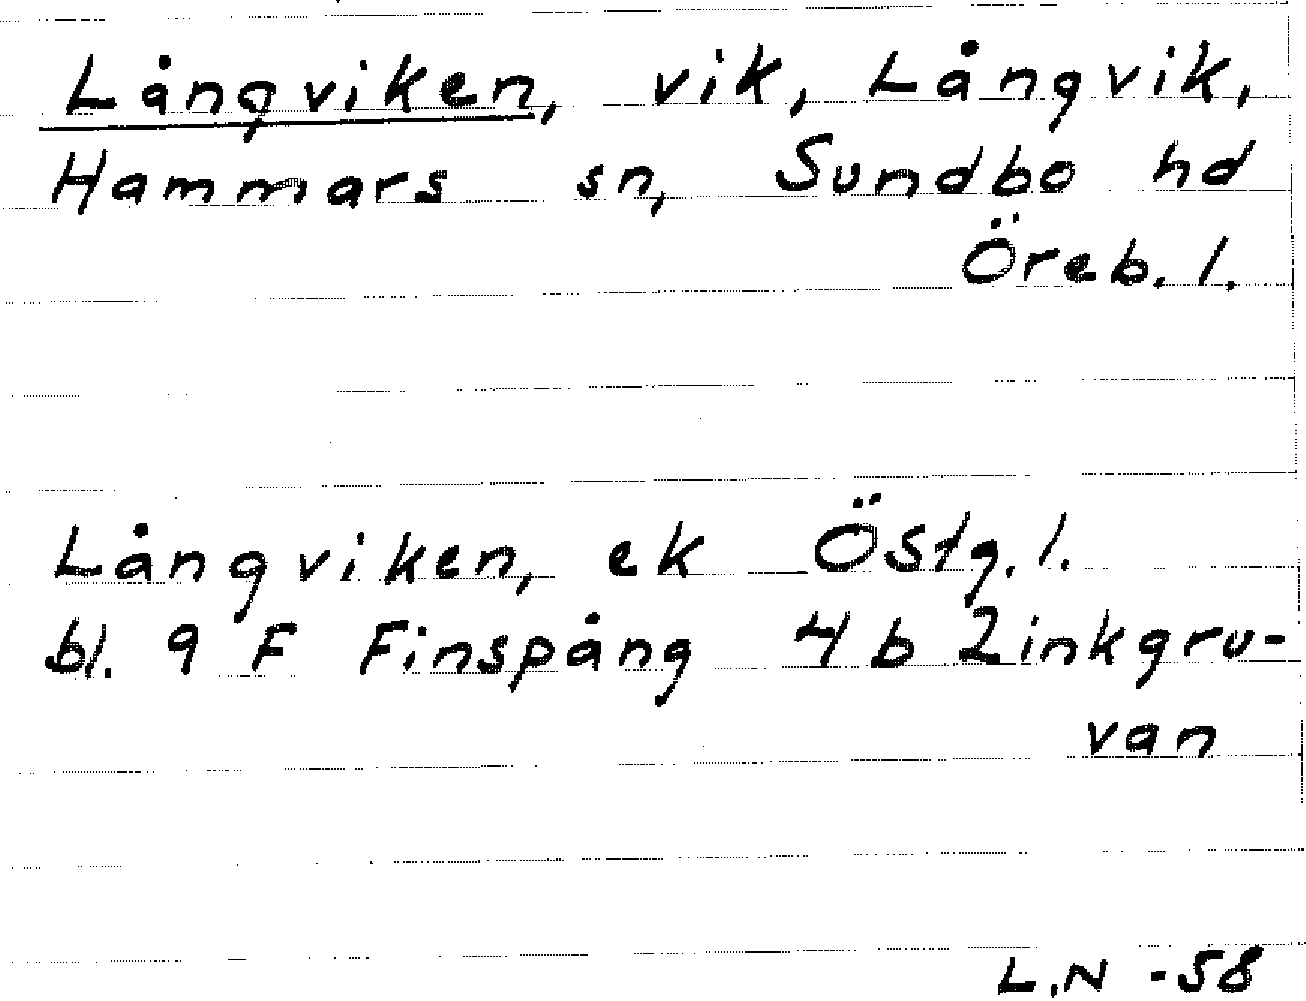 Långviken, vik, Långvik,
Hammars sn, Sundbo hd
Öreb. l.
Långviken, ek Östg. l.
bl. 9 F Finspång 4 b Zinkgru-
van
L.N -58